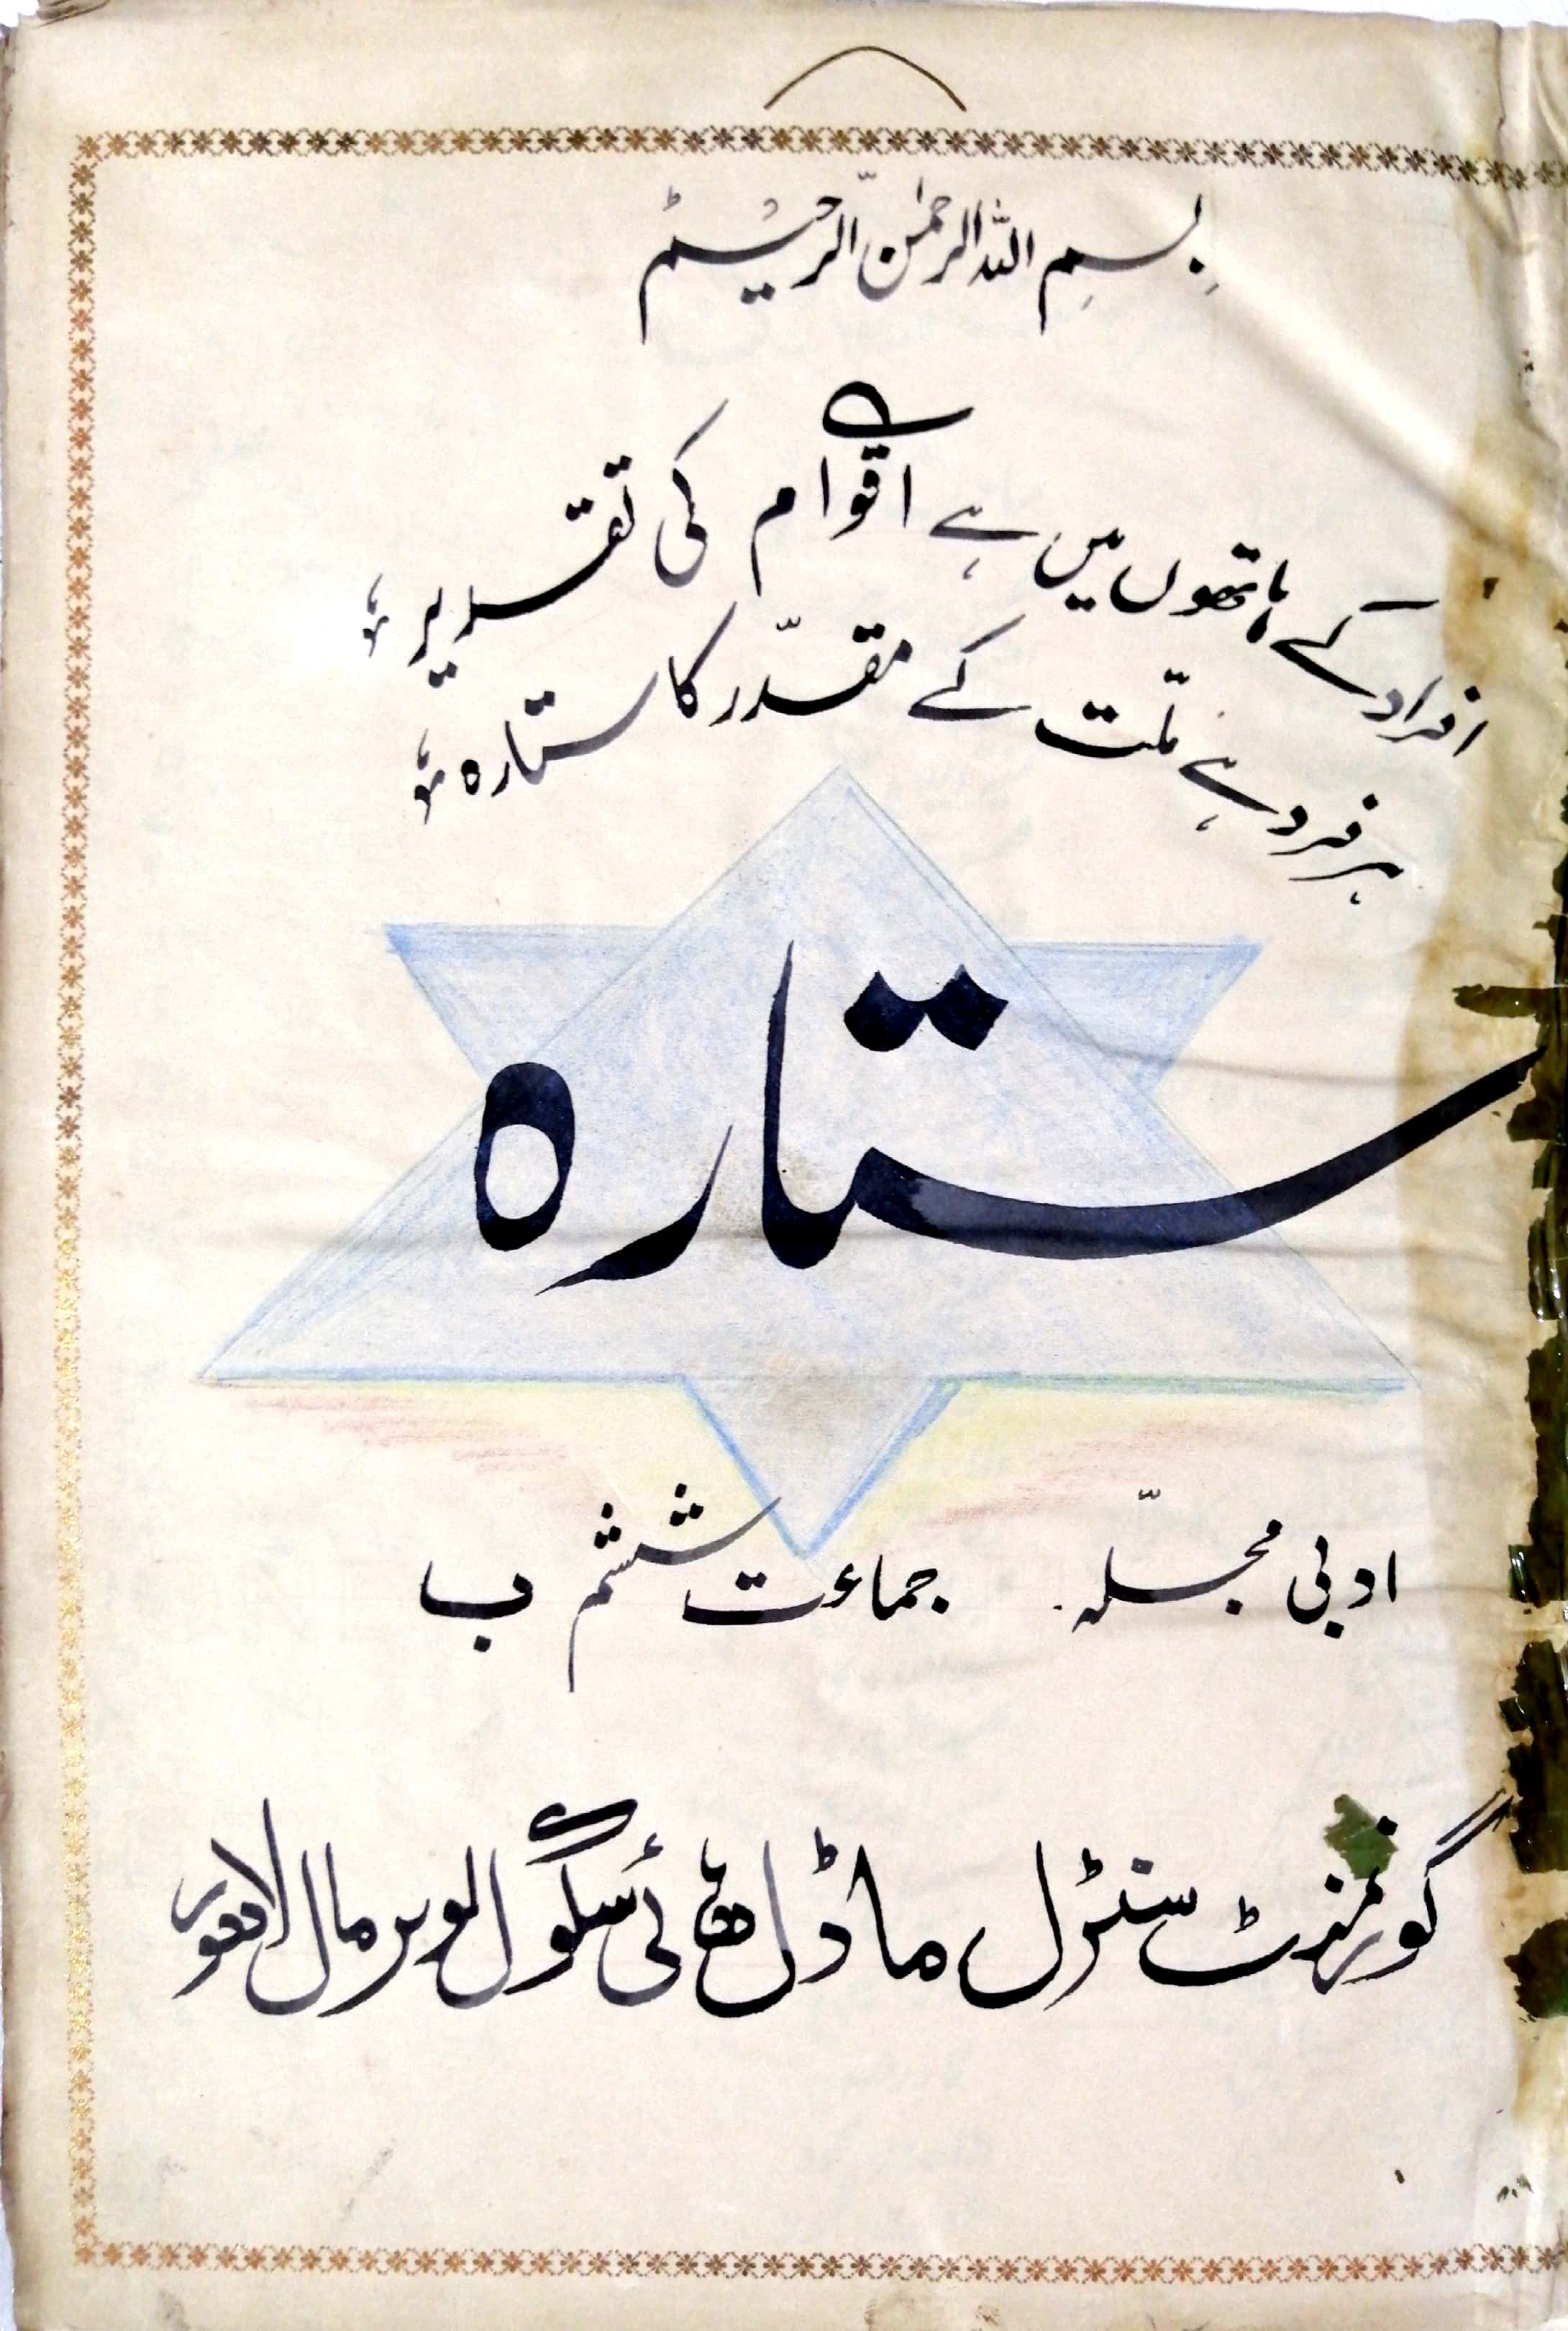 بِسمِ اللہ الرحمٰن الرّحیْم
افراد کے ہاتھوں میں ہے اقوام کی تقدیر
ہر فرد ہے ملّت کے مقدّر کا ستارہ
ستارہ
ادبی مجلّہ جماعت ششم ب
گورنمنٹ سنٹرل ماڈل ھائی سکول لوئر مال لاھور